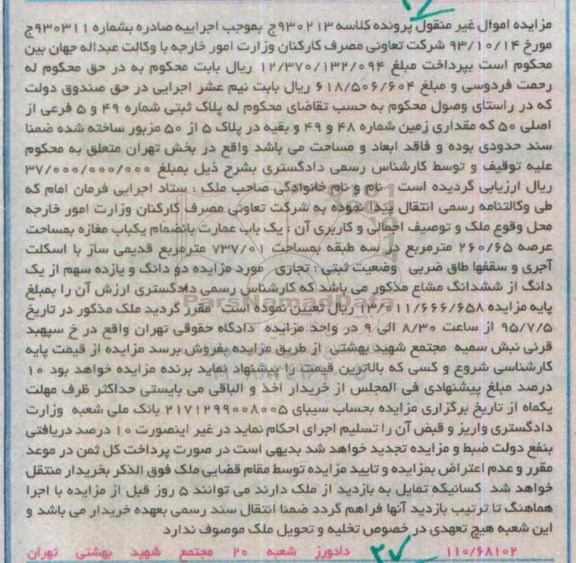 مزایده اموال غیر منقول پرونده کلاسه ۹۳۰۲۱۳ج بموجب اجراییه صادره بشماره ۹۳۰۳۱۱ج
مورخ ۹۳/۱۰/۱۴ شرکت تعاونی مصرف کارکنان وزارت امور خارجه با وکالت عبداله جهان بین
محکوم است بپرداخت مبلغ ۱۲/۳۷۰/۱۳۲/۰۹۴ ریال بابت محکوم به در حق محکوم له
رحمت فردوسی و مبلغ ۶۱۸/۵۰۶/۶۰۴ ریال بابت نیم عشر اجرایی در حق صندوق دولت
که در راستای وصول محکوم به حسب تقاضای محکوم له پلاک ثبتی شماره ۴۹ و ۵ فرعی از
اصلی ۵۰ که مقداری زمین شماره ۴۸ و ۴۹ و بقیه در پلاک ۵ از ۵۰ مزبور ساخته شده ضمنا
سند حدودی بوده و فاقد ابعاد و مساحت می باشد واقع در بخش تهران متعلق به محکوم
علیه توقیف و توسط کارشناس رسمی دادگستری بشرح ذیل بمبلغ ۳۷/۰۰۰/۰۰۰/۰۰۰
ریال ارزیابی گردیده است . نام و نام خانوادگی صاحب ملک : ستاد اجرایی فرمان امام که
طی وکالتنامه رسمی انتقال پیدا نموده به شرکت تعاونی مصرف کارکنان وزارت امور خارجه
محل وقوع ملک و توصیف اجمالی و کاربری آن : یک باب عمارت بانضمام یکباب مغازه بمساحت
عرصه ۲۶۰/۶۵ مترمربع در سه طبقه بمساحت ۷۳۷/۰۱ مترمربع قدیمی ساز با اسکلت
آجری و سقفها طاق ضربی وضعیت ثبتی : تجاری مورد مزایده دو دانگ و یازده سهم از یک
دانگ از ششدانگ مشاع مذکور می باشد که کارشناس رسمی دادگستری ارزش آن را بمبلغ
پایه مزایده ۱۳/۰۱۱/۶۶۶/۶۵۸ ریال تعیین نموده است مقرر گردید ملک مذکور در تاریخ
۹۵/۷/۵ از ساعت ۸/۳۰ الی ۹ در واحد مزایده دادگاه حقوقی تهران واقع در خ سپهبد
قرنی نبش سمیه مجتمع شهید بهشتی از طریق مزایده بفروش برسد مزایده از قیمت پایه
کارشناسی شروع و کسی که بالاترین قیمت را پیشنهاد نماید برنده مزایده خواهد بود ۱۰
درصد مبلغ پیشنهادی فی المجلس از خریدار اخذ و الباقی می بایستی حداکثر ظرف مهلت
یکماه از تاریخ برگزاری مزایده بحساب سیبای ۲۱۷۱۲۹۹۰۰۸۰۰۵ بانک ملی شعبه وزارت
دادگستری واریز و قبض آن را تسلیم اجرای احکام نماید در غیر اینصورت ۱۰ درصد دریافتی
بنفع دولت ضبط و مزایده تجدید خواهد شد بدیهی است در صورت پرداخت کل ثمن در موعد
مقرر و عدم اعتراض بمزایده و تایید مزایده توسط مقام قضایی ملک فوق الذکر بخریدار منتقل
خواهد شد کسانیکه تمایل به بازدید از ملک دارند می توانند ۵ روز قبل از مزایده با اجرا
هماهنگ تا ترتیب بازدید آنها فراهم گردد ضمنا انتقال سند رسمی بعهده خریدار می باشد و
این شعبه هیچ تعهدی در خصوص تخلیه و تحویل ملک موصوف ندارد
۱۱۰/۶۸۱۰۲ دادورز شعبه ۲۰ مجتمع شهید بهشتی تهران
ParsNamadData